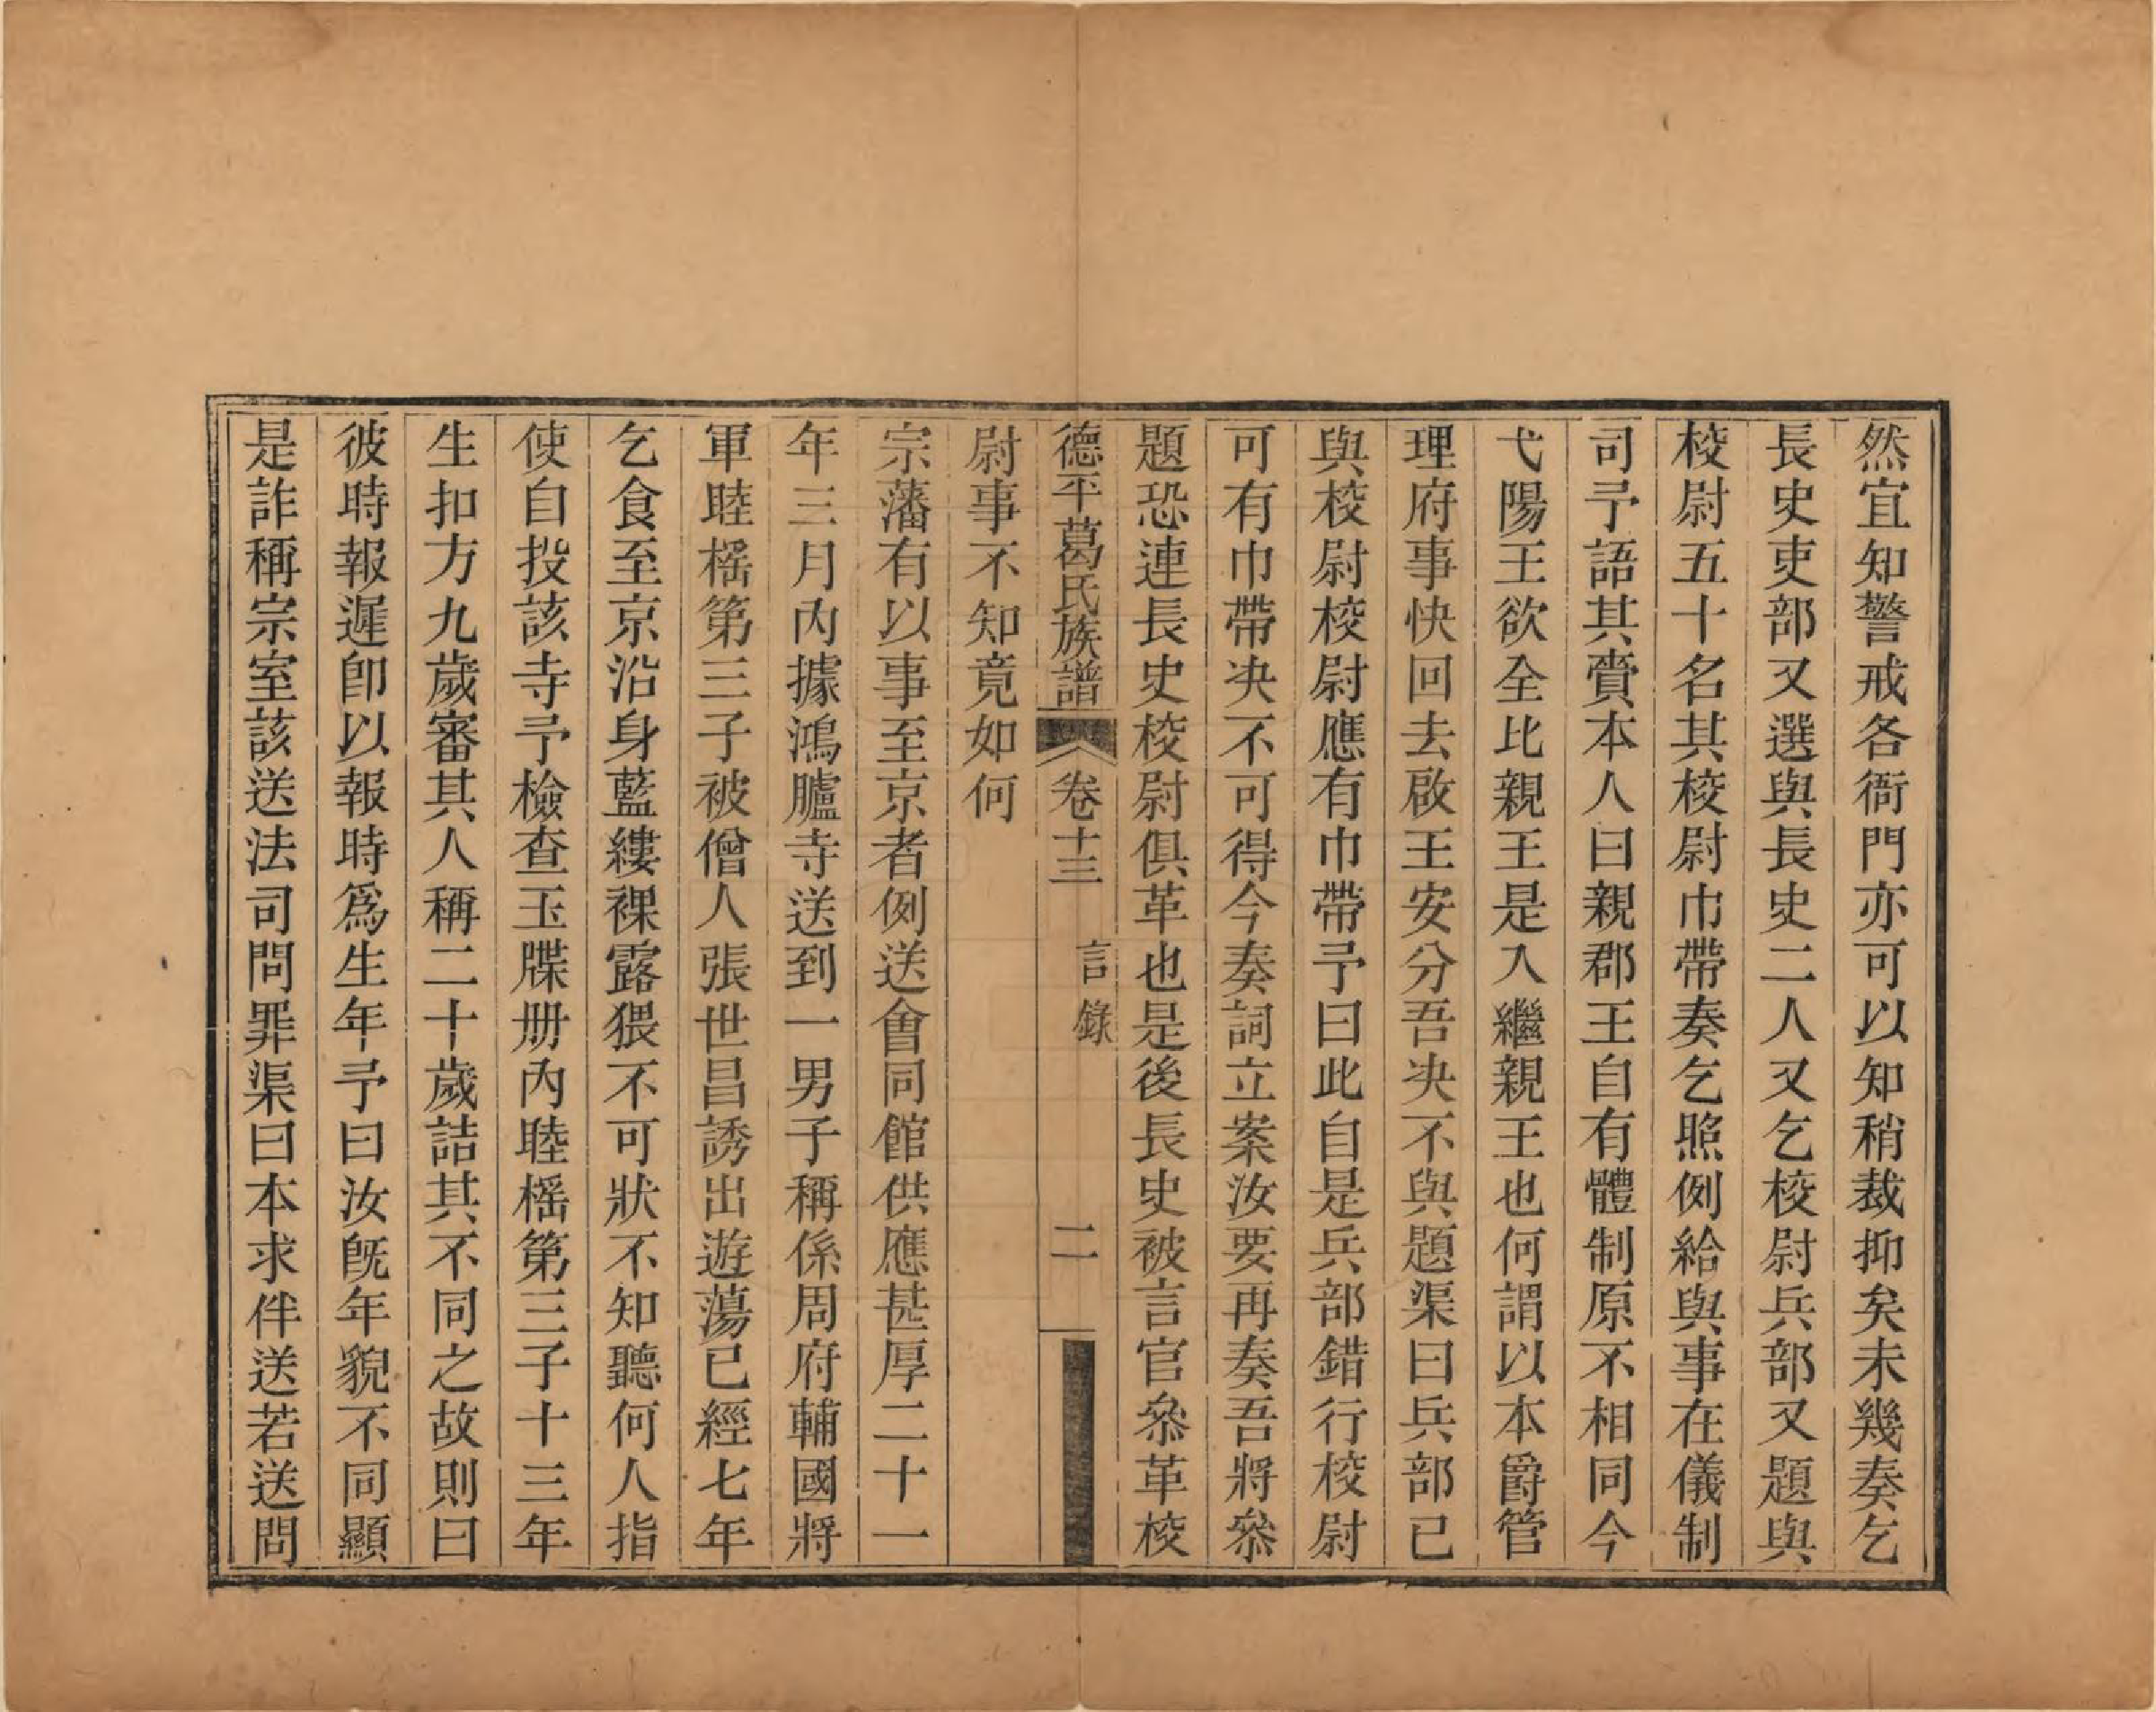 然宜知警戒各衙門亦可以知稍裁抑矣未幾奏乞
長史吏部又選與長史二人又乞校尉兵部又題與
校尉五十名其校尉巾帶奏乞照例給與事在儀制
司予語其賫本人曰親郡王自有體制原不相同今
弋陽王欲全比親王是入繼親王也何謂以本爵管
理府事快回去啟王安分吾決不與題渠曰兵部已
與校尉校尉應有巾帶予曰此自是兵部錯行校尉
可有巾帶決不可得今奏詞立案汝要再奏吾將叅
題恐連長史校尉俱革也是後長史被言官叅革校
尉事不知竟如何
德平葛氏族譜 卷十三 言錄 二
宗藩有以事至京者例送會同館供應甚厚二十一
年三月內據鴻臚寺送到一男子稱係周府輔國將
軍睦㮒第三子被僧人張世昌誘出遊蕩已經七年
乞食至京沿身藍縷裸露猥不可狀不知聽何人指
使自投該寺予檢查玉牒册內睦㮒第三子十三年
生扣方九歲審其人稱二十歲詰其不同之故則曰
彼時報遲卽以報時爲生年予曰汝旣年貌不同顯
是詐稱宗室該送法司問罪渠曰本求伴送若送問